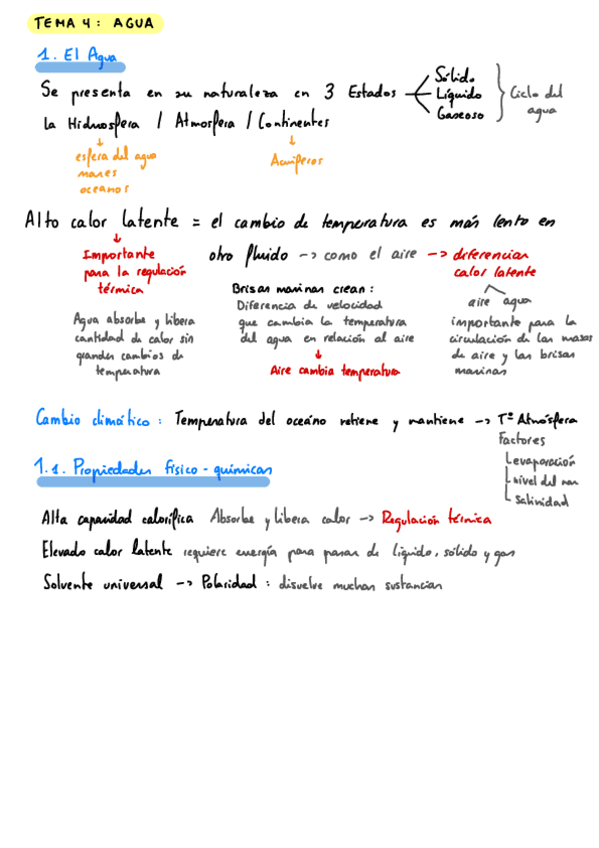 TEMA 4: AGUA
1. El Agua
Se presenta en su naturaleza en 3 Estados
Sólido
Líquido
Gaseoso
Ciclo del
agua
La Hidrosfera / Atmosfera / Continentes
esfera del agua
mares
oceanos
Acuiferos
Alto calor latente = el cambio de temperatura es más lento en
otro fluido -> como el aire -> diferencian
calor latente
Importante
para la regulación
térmica
Agua absorbe y libera
cantidad de calor sin
grandes cambios de
temperatura
Brisas marinas crean:
Diferencia de velocidad
que cambia la temperatura
del agua en relación al aire
Aire cambia temperatura
aire agua
importante para la
circulación de las masas
de aire y las brisas
marinas
Cambio climático: Temperatura del oceáno retiene y mantiene -> Tª Atmósfera
Factores
evaporación
nivel del mar
Salinidad
1.1. Propiedades físico-químicas
Alta capacidad calorífica Absorbe y libera calor -> Regulación térmica
Elevado calor latente requiere energía para pasar de líquido, sólido y gas
Solvente universal -> Polaridad: disuelve muchas sustancias